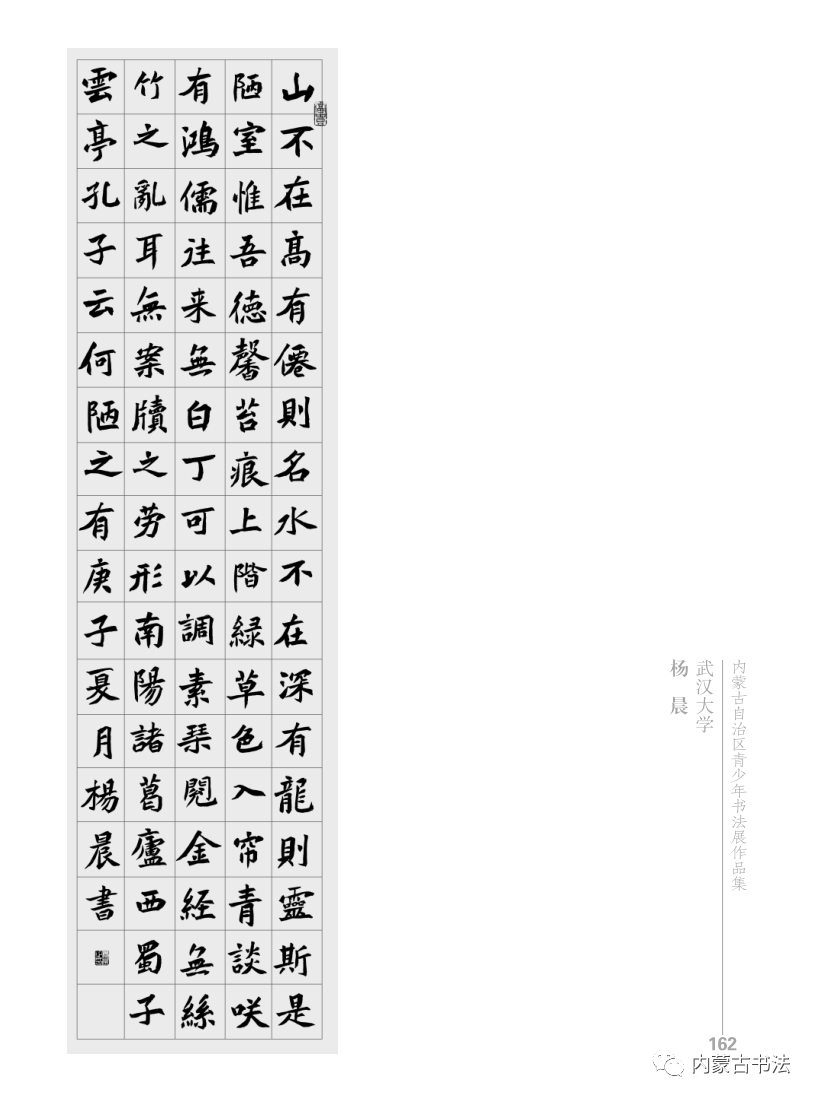 山不在髙有僊則名水不在深有龍則靈斯是
陋室惟吾德馨苔痕上階緑草色入帘青談咲
有鴻儒往来無白丁可以調素琹閲金経無絲
竹之亂耳無案牘之劳形南陽諸葛廬西蜀子
雲亭孔子云何陋之有庚子夏月楊晨書
内蒙古自治区青少年书法展作品集
武汉大学
杨 晨
162
内蒙古书法